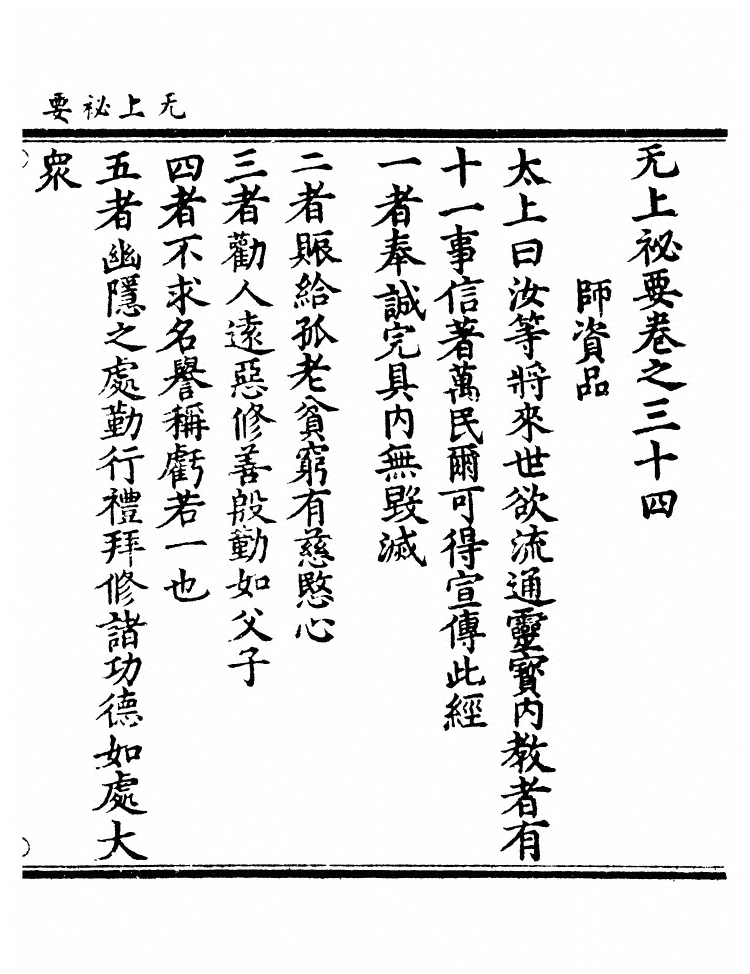 无上祕要
无上祕要卷之三十四
師資品
太上曰汝等將來世欲流通靈寳内教者有
十一事信著萬民爾可得宣傳此經
一者奉誡完具内無毀滅
二者賑給孤老貧窮有慈愍心
三者勸人逺惡修善殷勤如父子
四者不求名譽稱虧若一也
五者幽隱之處勤行禮拜修諸功德如處大
衆